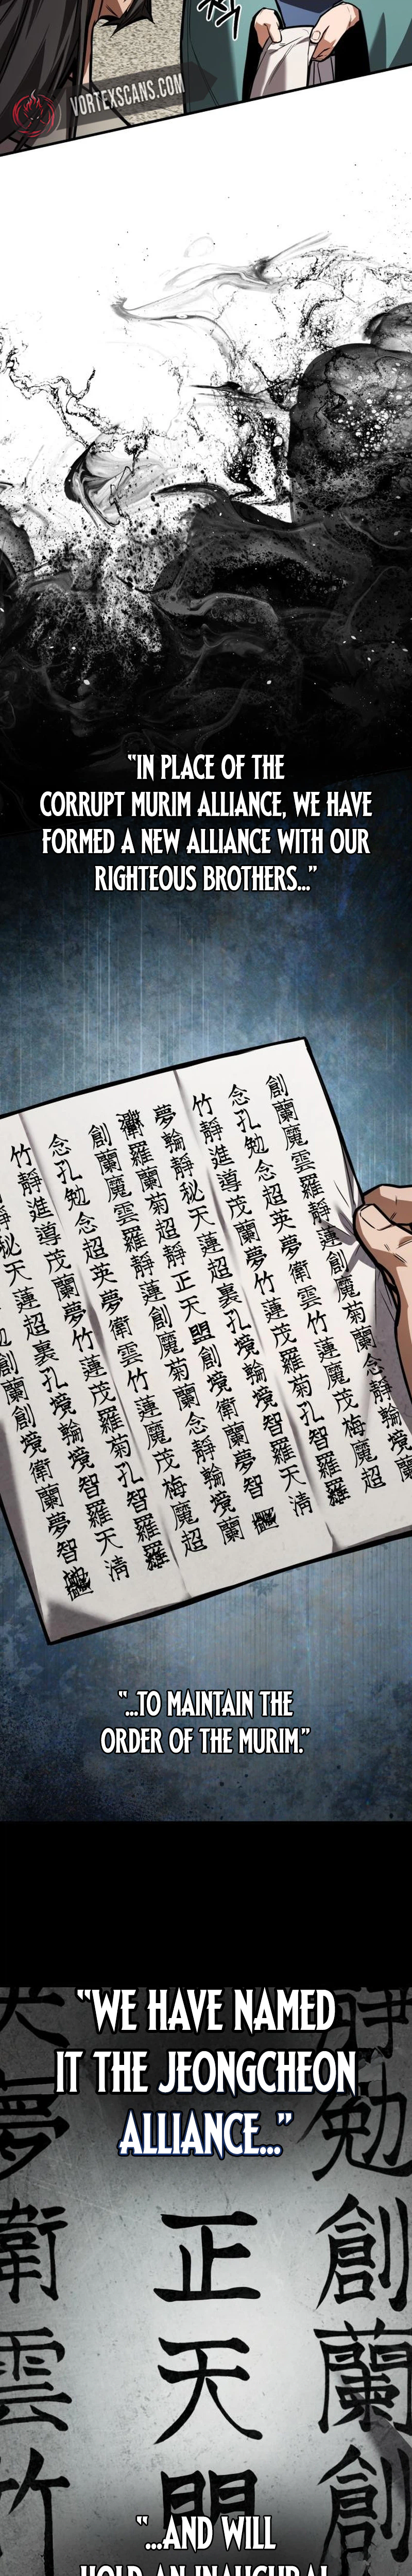 VORTEXSCANS.COM
"IN PLACE OF THE
CORRUPT MURIM ALLIANCE, WE HAVE
FORMED A NEW ALLIANCE WITH OUR
RIGHTEOUS BROTHERS..."
創蘭魔雲羅靜蓮創魔菊蘭念靜輪境蘭
念孔勉念超英夢衛雲竹蓮魔茂梅魔超
竹靜進導茂蘭夢竹蓮茂羅菊孔智羅
夢輪靜秘天蓮超裏孔境輪境智羅天淸
羅蘭菊超靜正天盟創境衛蘭夢智
創蘭魔雲羅靜蓮創魔菊蘭念靜輪境蘭
念孔勉念超英夢衛雲竹蓮魔茂梅魔超
竹靜進導茂蘭夢竹蓮茂羅菊孔智羅
天蓮超裏孔境輪境智羅天淸
創蘭創境衛蘭夢智
"...TO MAINTAIN THE
ORDER OF THE MURIM."
"WE HAVE NAMED
IT THE JEONGCHEON
ALLIANCE..."
勉創蘭創
正天盟
夢衛雲竹
"...AND WILL
HOLD AN INAUGURAL